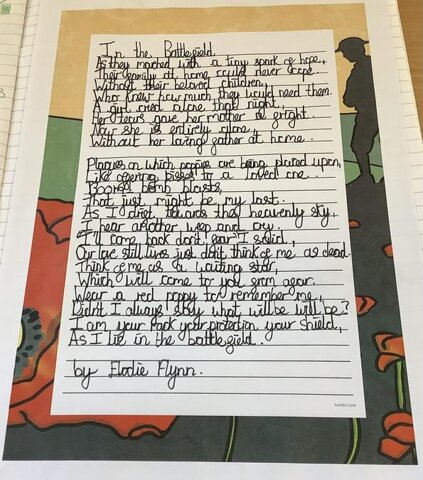 In the Battlefield
As they marched with a tiny spark of hope,
Their family at home, could never cope
Without their beloved children,
Who knew how much they would need them.
A girl cried alone that night,
Her tears gave her mother a fright.
Now she is entirely alone,
Without her loving father at home.
Plaques on which poppies are being placed upon,
Like offering kisses to a loved one.
Boom! bomb blasts,
That just might be my last.
As I drift towards the heavenly sky,
I hear another weep and cry.
I'll come back don't fear I said,
Our love still lives just don't think of me as dead.
Think of me as a waiting star,
Which will come to you from afar.
Wear a red poppy to remember me,
Didn't I always say what will be will be?
I am your rock your protection your shield,
As I lie in the battlefield.
by Elodie Flynn.
twinkl.com